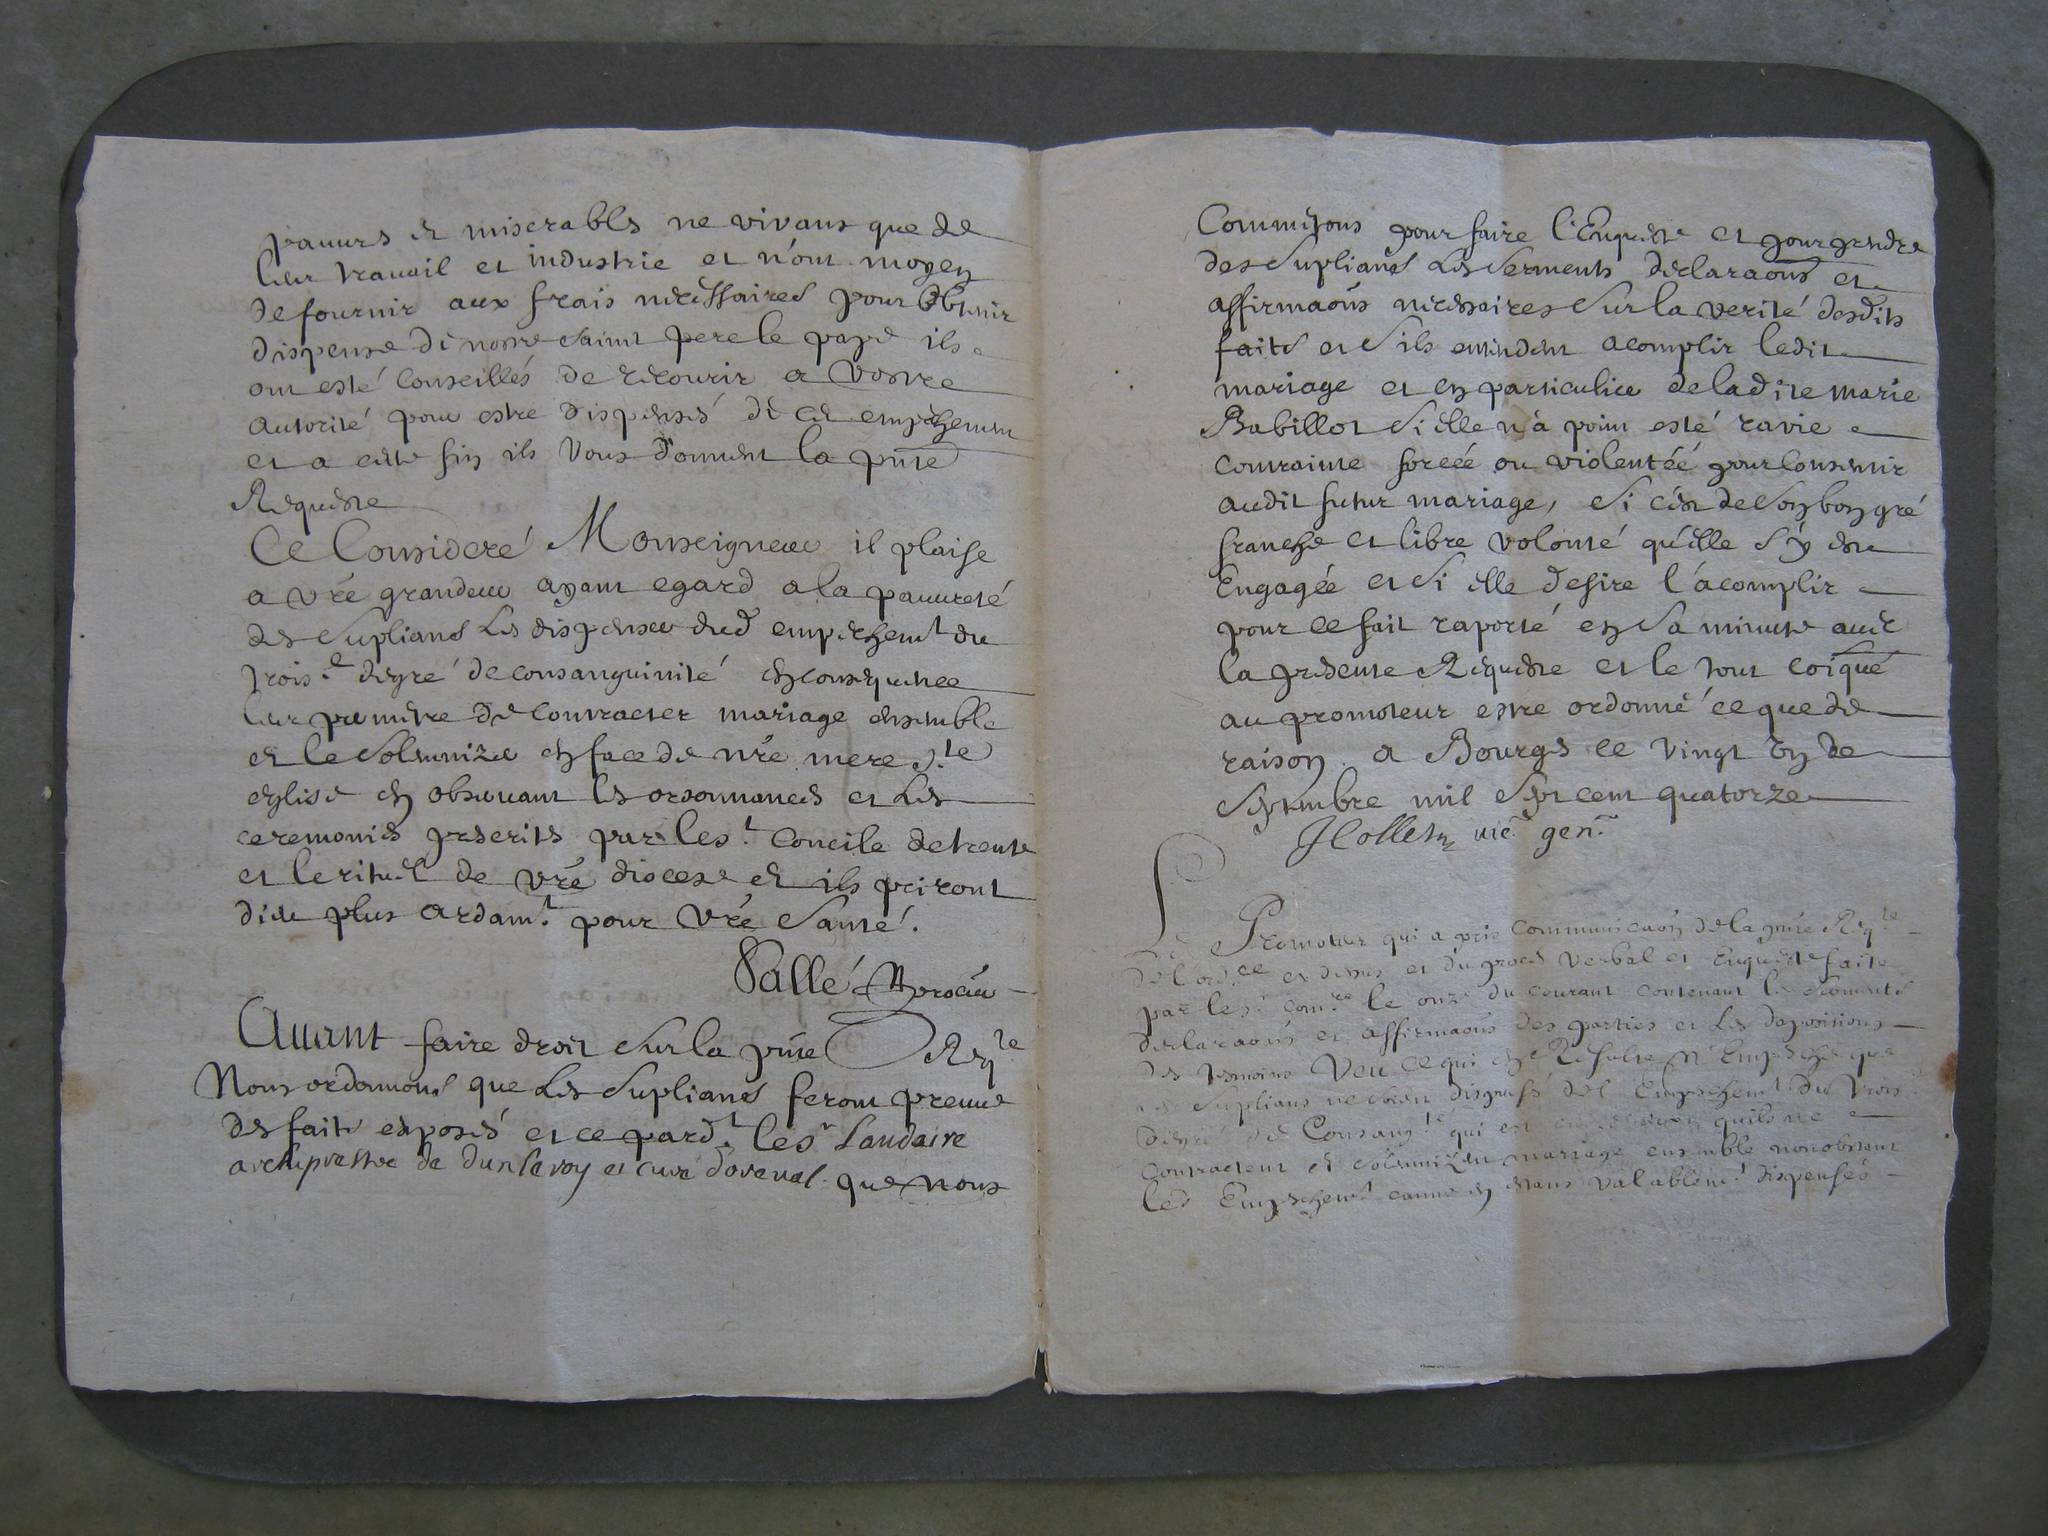 pauures et miserables ne vivans que de
leur travail et industrie et n'ont moyen
de fournir aux frais necessaires pour obtenir
dispense de nostre saint pere le pape ils
ont esté conseillés de recourir a vostre
autorité pour estre dispensés de cet empeschement
et a cette fin ils vous donnent la pnte
Requeste
Ce Consideré Monseigneur il plaise
a vre grandeur ayant egard a la pauureté
des suplians les dispenser dud empeschemt du
trois.e degré de consanguinité en consequence
leur permettre de contracter mariage ensemble
et le solemnizer en face de nre mere ste
eglise en obseruant les ordonnances et les
ceremonies prescrits par le st Concile de trente
et le rituel de vre diocese et ils priront
dieu plus ardamt pour vre Santé.
Vallé
Auant faire droit sur la pnte Reqte
Nous ordonnons que les suplians feront preuue
des faits exposés et ce pardt le sr Laudaire
archiprestre de dunleroy et curé d'oreval que nous
Commetons pour faire l'Enqueste et pour prendre
des suplians les serments declaraons et
affirmaons necessaires sur la verité desdits
faits et s'ils entendent acomplir ledit
mariage et en particulier de ladite marie
Babillot si elle n'a point esté ravie
contrainte forcée ou violentée pour consentir
audit futur mariage, si c'est de son bon gré
franche et libre volonté qu'elle s'y est
Engagée et si elle desire l'acomplir
pour ce fait raporté en sa minute avec
la presente Requeste et le tout coique
au promoteur estre ordonné ce que de
raison a Bourges ce vingt un de
Septembre mil sept cent quatorze
vic. gen.
Le Promoteur qui a pris communicaon de la pnte Reqte
de l'ordce cy dessus et du proces verbal et Enqueste faite
par le sr comre le onze du courant contenant les serments
declaraons et affirmaons des parties et les depositions
des temoins Veu ce qui en Resulte N'Empesche que
les suplians ne soient dispensés de l'Empeschemt du trois.
degré de Consangté qui est quils ne
contractent et solemnizent mariage ensemble nonobstant
led Empeschemt comme en estans valablemt dispensés